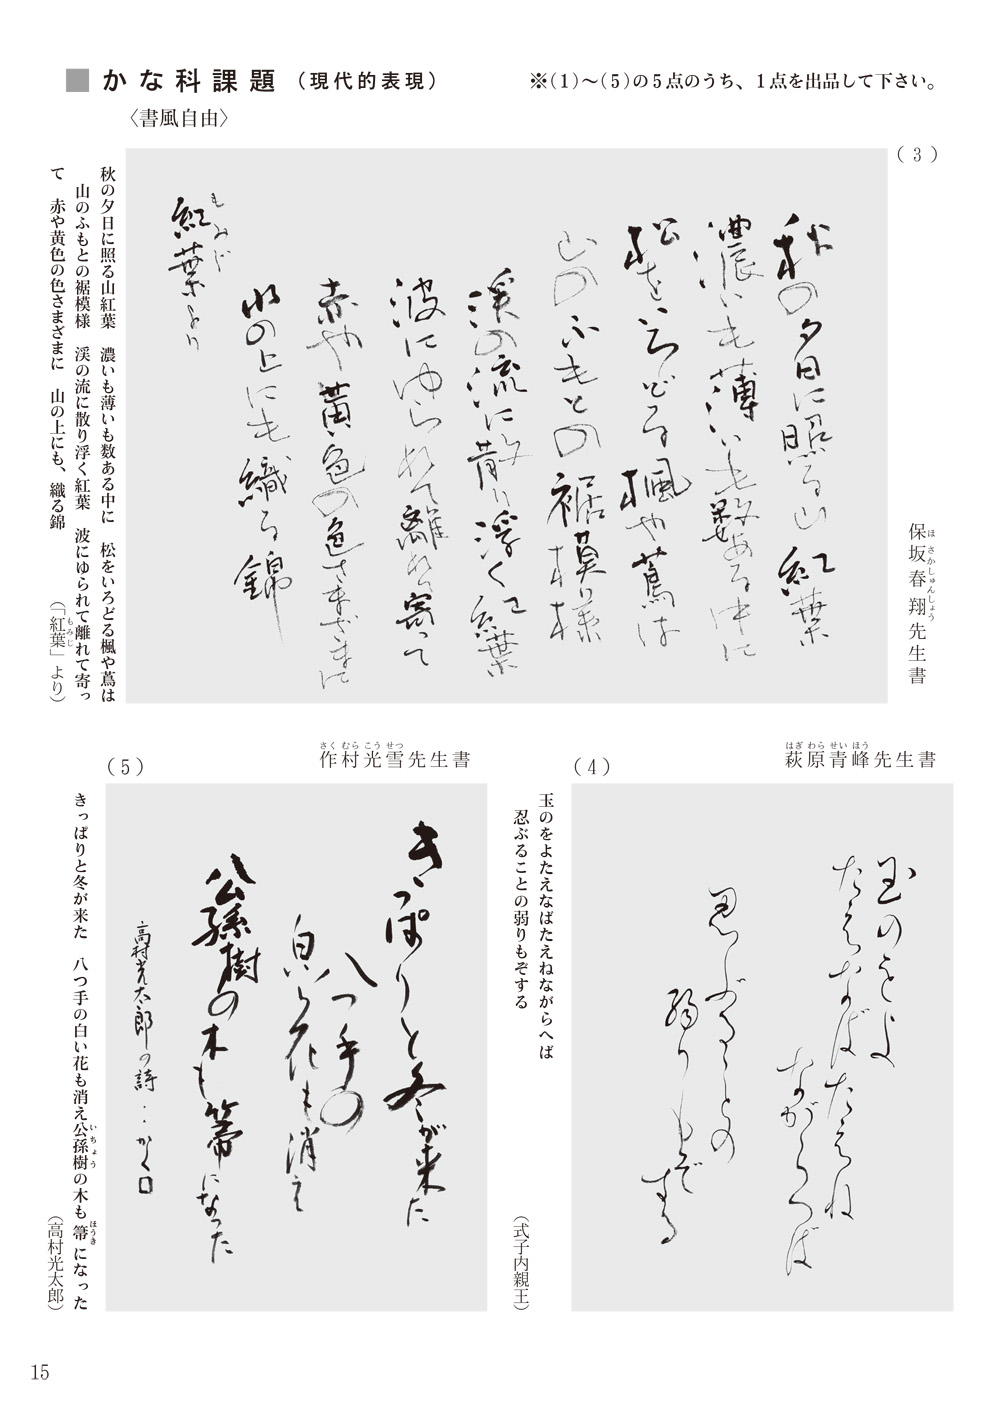 ■かな科課題（現代的表現）
※(1)～(5)の5点のうち、1点を出品して下さい。
〈書風自由〉
(3)
保坂春翔先生書
ほさかしゅんしょう
秋の夕日に照る山紅葉
濃いも薄いも数ある中に
松をいろどる楓や蔦は
山のふもとの裾模様
渓の流に散り浮く紅葉
波にゆられて離れて寄って
赤や黄色の色さまざまに
水の上にも織る錦
紅葉より
もみじ
秋の夕日に照る山紅葉　濃いも薄いも数ある中に　松をいろどる楓や蔦は
山のふもとの裾模様　渓の流に散り浮く紅葉　波にゆられて離れて寄っ
て　赤や黄色の色さまざまに　山の上にも、織る錦
（「紅葉」より）
もみじ
(4)
萩原青峰先生書
はぎわらせいほう
玉のをよ
たえなばたえね
ながらへば
忍ぶることの
弱りもぞ
する
玉のをよたえなばたえねながらへば
忍ぶることの弱りもぞする
（式子内親王）
(5)
作村光雪先生書
さくむらこうせつ
きっぱりと冬が来た
八つ手の
白い花も消え
公孫樹の木も箒になった
高村光太郎の詩・・かく
きっぱりと冬が来た　八つ手の白い花も消え公孫樹の木も箒になった
いちょう
ほうき
（高村光太郎）
15